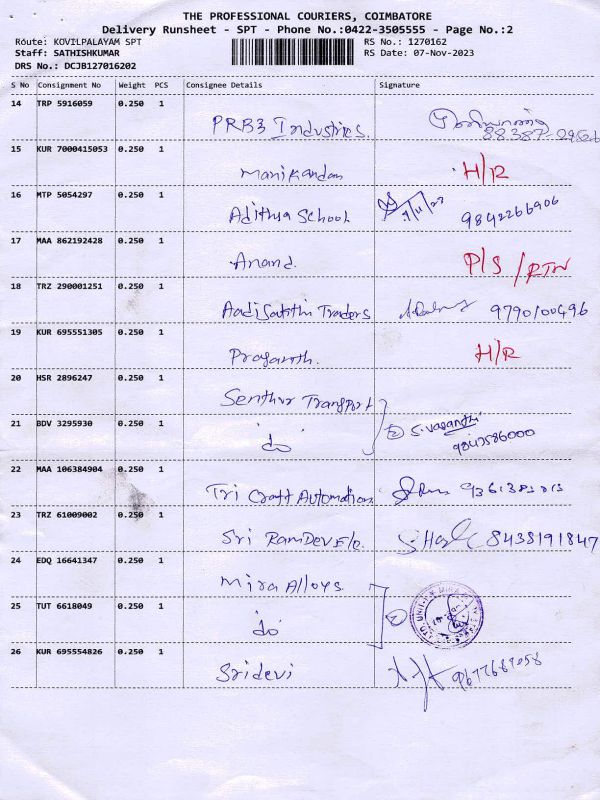 THE PROFESSIONAL COURIERS, COIMBATORE
Delivery Runsheet - SPT - Phone No.:0422-3505555 - Page No.:2
Route: KOVILPALAYAM SPT RS No.: 1270162
Staff: SATHISHKUMAR RS Date: 07-Nov-2023
DRS No.: DCJB127016202
S No Consignment No Weight PCS Consignee Details Signature
14 TRP 5916059 0.250 1
PRB3 Industries.
15 KUR 7000415053 0.250 1
Manikandan H/R
16 MTP 5054297 0.250 1
Adithya School 9842266906
17 MAA 862192428 0.250 1
Anand. P/S /RTN
18 TRZ 290001251 0.250 1
Aadi Sakthi Traders 9790100496
19 KUR 695551305 0.250 1
Prasanth. H/R
20 HSR 2896247 0.250 1
Senthur Transport
21 BDV 3295930 0.250 1
do ② S. Vasanthi
9843586000
22 MAA 106384904 0.250 1
Tri Craft Automation
23 TRZ 61009002 0.250 1
Sri RamDev F/e. 8438191847
24 EDQ 16641347 0.250 1
Mira Alloys.
25 TUT 6618049 0.250 1
do ②
26 KUR 695554826 0.250 1
Sridevi